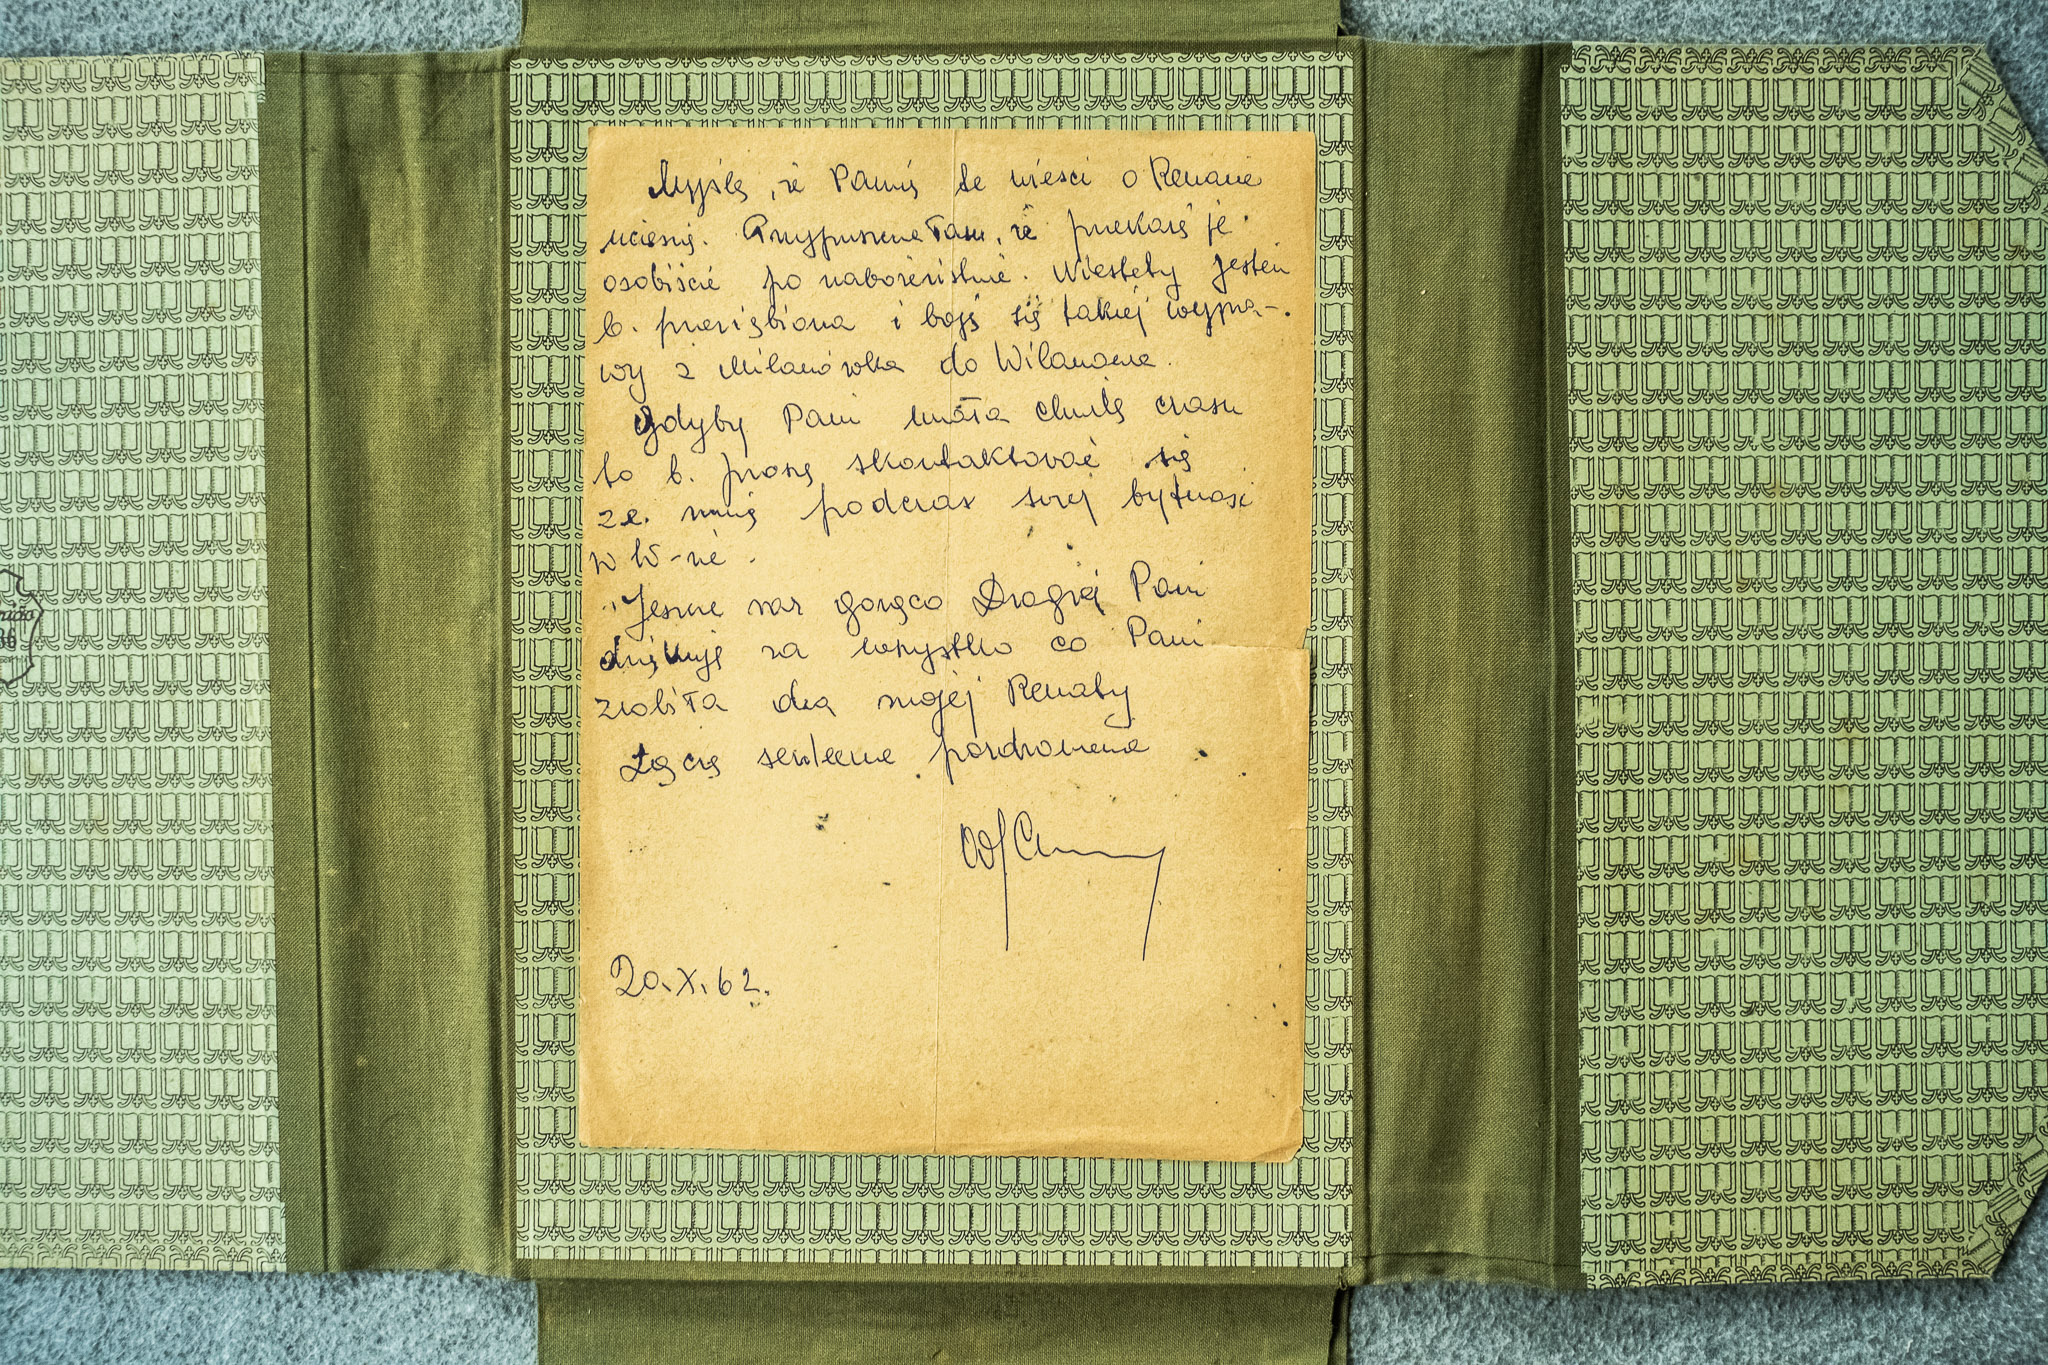 Myślę, że Panią te wieści o Renacie
ucieszą. Przypuszczałam, że przekażę je
osobiście po nabożeństwie. Niestety jestem
b. przeziębiona i boję się takiej wypra-
wy z Milanówka do Wilanowa.
Gdyby Pani miała chwilę czasu
to b. proszę skontaktować się
ze mną podczas swej bytności
w W-wie.
Jeszcze raz gorąco Drogiej Pani
dziękuję za wszystko co Pani
zrobiła dla mojej Renaty
Łączę serdeczne pozdrowienia
20.X.62.